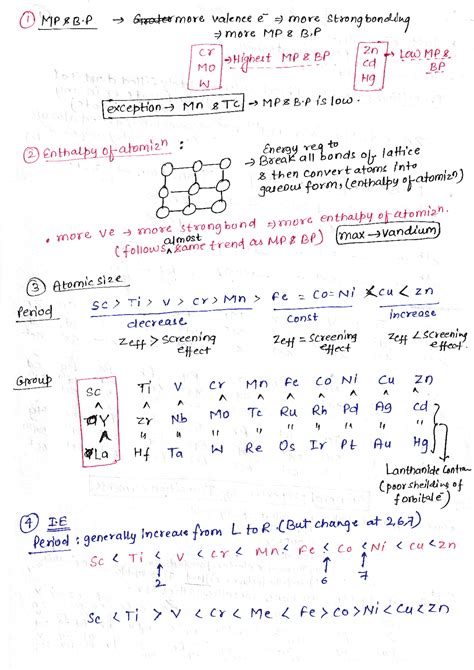 ① MP & B.P → Greater more valence e⁻ ⇒ more strong bonding
⇒ more MP & B.P
Cr
Mo
W
→ Highest MP & BP
Zn
Cd
Hg
→ Low MP & BP
exception → Mn & Tc → MP & B.P is low.
② Enthalpy of atomizⁿ :
Energy req to
→ Break all bonds of lattice
& then convert atoms into
gaseous form, (enthalpy of atomizⁿ)
• more ve → more strong bond ⇒ more enthalpy of atomizⁿ.
(follows almost same trend as MP & BP) max → vandium
③ Atomic size
Period Sc > Ti > V > Cr > Mn > Fe = Co = Ni < Cu < Zn
decrease const increase
Zeff > Screening effect
Zeff = Screening effect
Zeff < Screening effect
Group
Sc Ti V Cr Mn Fe Co Ni Cu Zn
^ ^ ^ ^ ^ ^ ^ ^ ^ ^
Y Zr Nb Mo Tc Ru Rh Pd Ag Cd
^ " " " " " " " " "
La Hf Ta W Re Os Ir Pt Au Hg
Lanthanide Contra
(poor sheilding of
f orbital e⁻)
④ I.E
Period : generally increase from L to R. (But change at 2,6,7)
Sc < Ti < V < Cr < Mn < Fe < Co < Ni < Cu < Zn
2 6 7
Sc < Ti > V < Cr < Me < Fe > Co > Ni < Cu < Zn